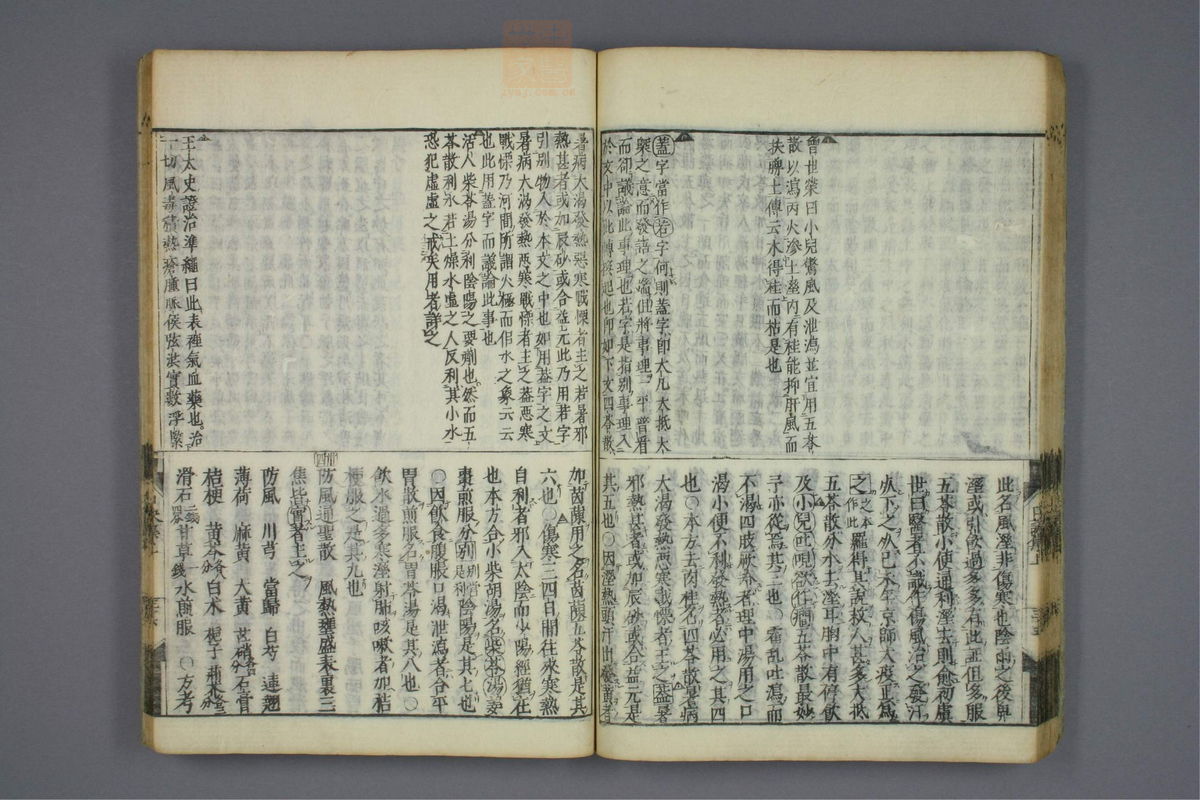 曾世榮曰小兒驚風及泄瀉並宜用五苓
散以瀉丙火滲土濕內有桂能抑肝風而
扶脾土傳云木得桂而枯是也
蓋字當作若字何則蓋字卽大凡大抵大
槩之意而發語之端但將事理一平普看
而卻議論此事理也若字是指別事理入
於文中以此轉捩起也仰如下文四苓散
此名風濕非傷寒也陰雨之後卑
濕或引飲過多多有此証但多服
五苓散小便通利濕去則愈初虞
世曰醫者不識作傷風治之發汗
死下之死己未年京師大疫正爲
之羅得其說救人甚多大抵
五苓散分水去濕耳胸中有停飲
及小兒吐哯欲作癇五苓散最妙
子亦從焉其三也○霍亂吐瀉而
不渴四肢厥者理中湯用之口
渴小便不利發熱者必用之其四
也○本方去肉桂名四苓散暑病
大渴發熱惡寒戰慄者主之蓋暑
邪熱甚者或加辰砂或合益元是
其五也○因濕熱頭汗出發黃者
暑病大渴發熱惡寒戰慄者主之若暑邪
熱甚者或加辰砂或合益元此乃用若字
引別物入於本文之中也如用蓋字之文
暑病大渴發熱惡寒戰慄者主之蓋惡寒
戰慄乃河間所謂火極而佀水之象云云
也此用蓋字而議論此事也
活人柴苓湯分利陰陽之要劑也然而五
苓散利水若土燥水虛之人反利其小水
恐犯虛虛之戒矣用者詳之
王太史證治準繩曰此表裡氣血藥也治
一切風毒積熱瘡腫脈候弦洪實數浮緊
加茵蔯用之名茵蔯五苓散是其
六也○傷寒二四日間往來寒熱
自利者邪入太陰而少陽經猶在
也本方合小柴胡湯名柴苓湯姜
棗煎服分別陰陽是其七也
○因飲食腹脹口渴泄瀉者合平
胃散煎服名胃苓湯是其八也○
飲水過多寒濕射肺咳嗽者加桔
梗服之是其九也
防風通聖散　風熱壅盛表裏三
焦皆實者主之
防風　川芎　當歸　白芍　連翹
薄荷　麻黃　大黃　芒硝　石膏
桔梗　黃芩　白朮　梔子　荊芥
滑石　甘草　水煎服　○方考